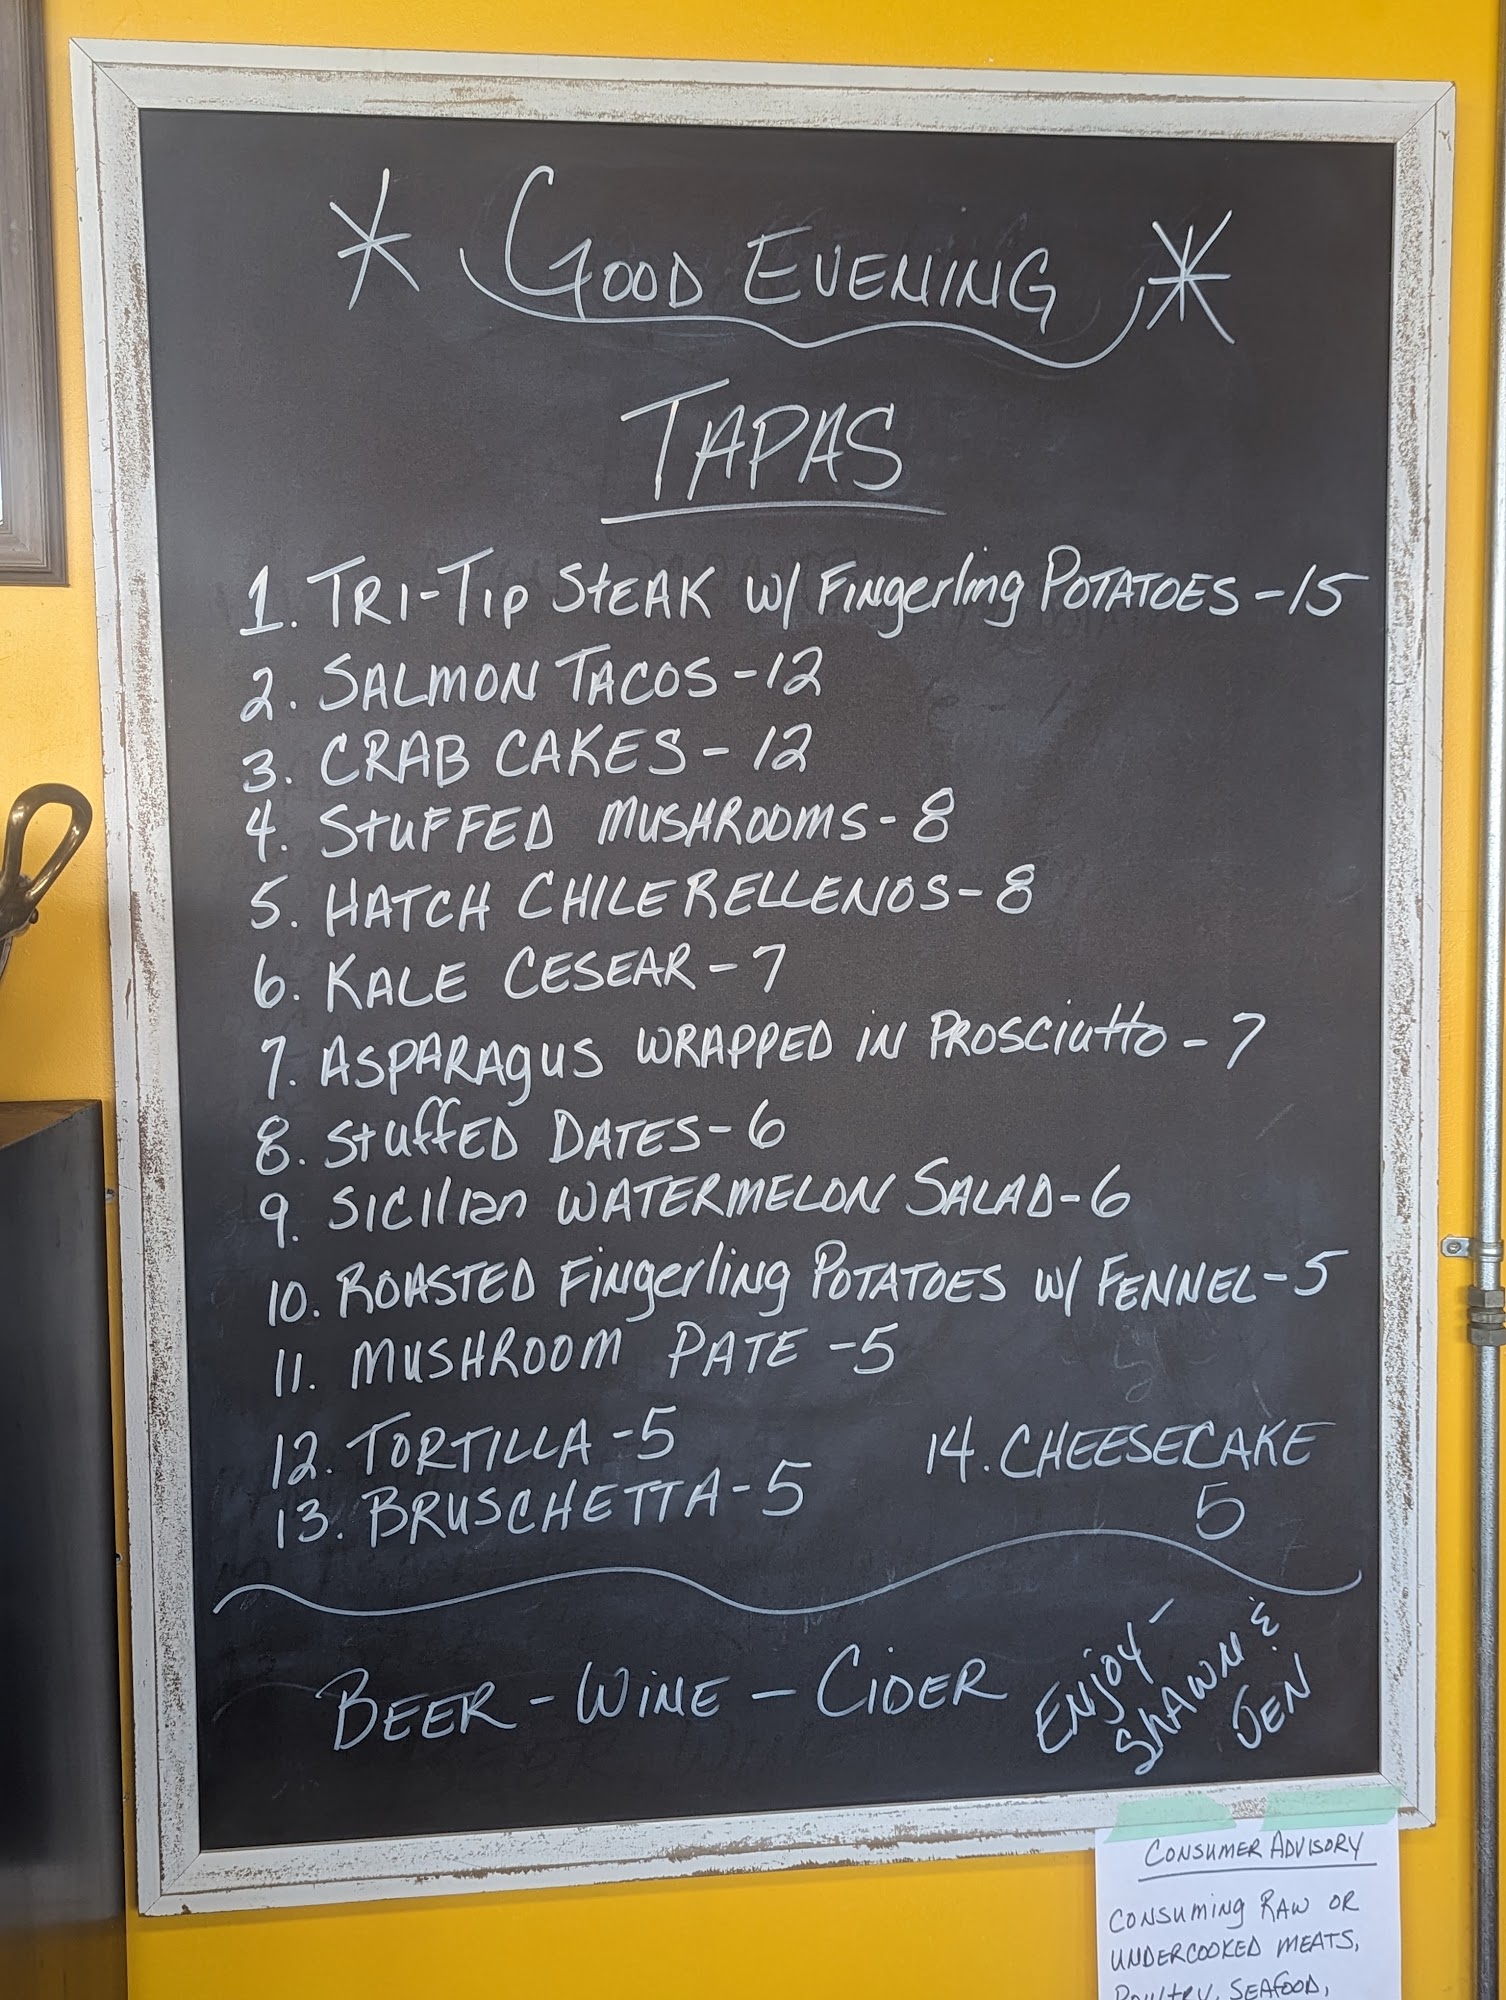 GOOD EVENING
TAPAS
1. TRI-TIP STEAK W/ FINgerling POTATOES - 15
2. SALMON TACOS - 12
3. CRAB CAKES - 12
4. STUFFED MUSHROOMS - 8
5. HATCH CHILE RELLENOS - 8
6. KALE CESEAR - 7
7. ASPARAGUS WRAPPED IN PROSCIUTTO - 7
8. STUFFED DATES - 6
9. SICILIAN WATERMELON SALAD - 6
10. ROASTED FINgerling POTATOES W/ FENNEL - 5
11. MUSHROOM PATE - 5
12. TORTILLA - 5
13. BRUSCHETTA - 5
14. CHEESECAKE
5
BEER - WINE - CIDER
ENJOY -
SHAWN &
JEN
CONSUMER ADVISORY
CONSUMING RAW OR
UNDERCOOKED MEATS,
POULTRY, SEAFOOD,